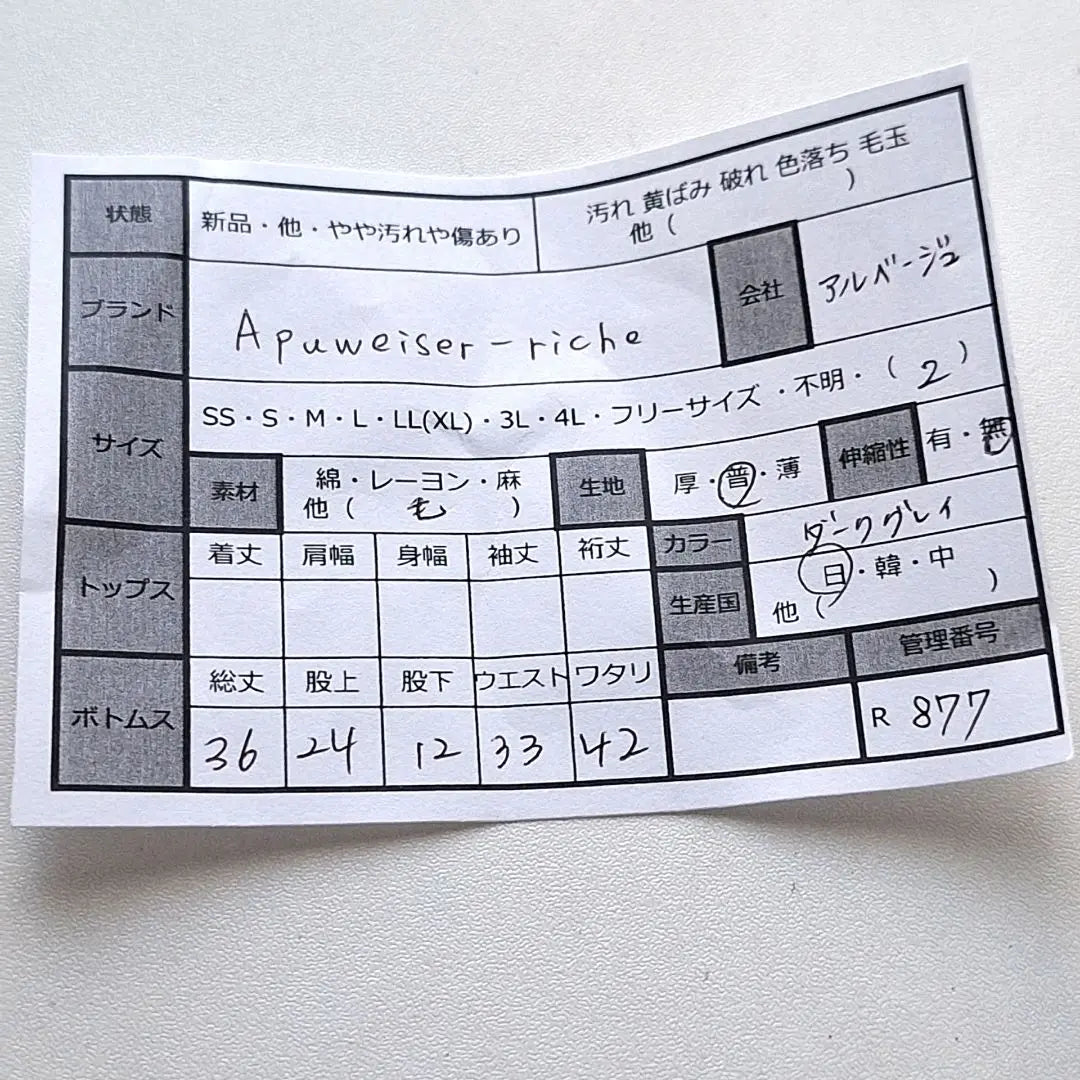 状態 新品・他・やや汚れや傷あり 汚れ 黄ばみ 破れ 色落ち 毛玉
他（ ）
ブランド Apuweiser-riche 会社 アルページュ
サイズ SS・S・M・L・LL(XL)・3L・4L・フリーサイズ ・不明・（ 2 ）
素材 綿・レーヨン・麻 生地 厚・普・薄 伸縮性 有・無
他（ 毛 ）
トップス 着丈 肩幅 身幅 袖丈 裄丈 カラー ダークグレイ
生産国 日・韓・中
他（ ）
ボトムス 総丈 股上 股下 ウエスト ワタリ 備考 管理番号
36 24 12 33 42 R 877